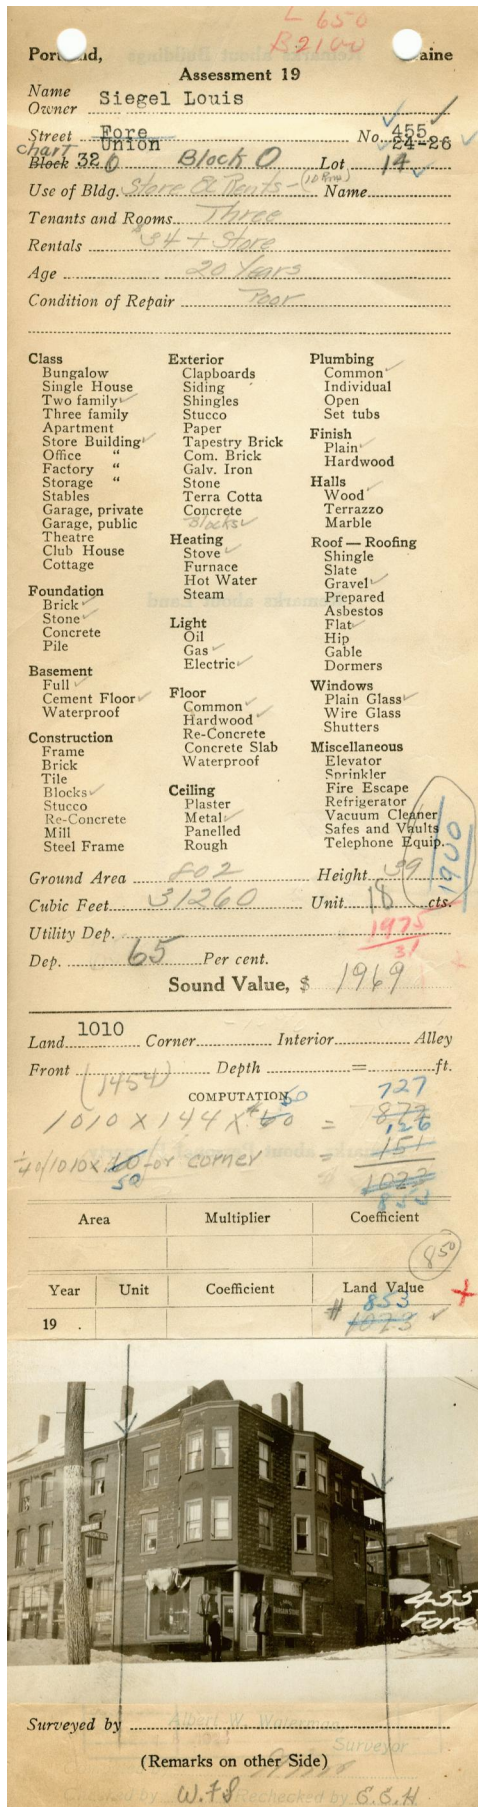 L 650
B 2100
Portland, Maine
Assessment 19
Name
Owner Siegel Louis
Street Fore No. 455
Union 24-26
chart
Block 32 O Block O Lot 14
Use of Bldg. Store & Rents - (10 Rms) Name
Tenants and Rooms Three
Rentals $34 + Store
Age 20 Years
Condition of Repair Poor
Class
Bungalow
Single House
Two family ✓
Three family
Apartment
Store Building ✓
Office "
Factory "
Storage "
Stables
Garage, private
Garage, public
Theatre
Club House
Cottage
Foundation
Brick ✓
Stone ✓
Concrete
Pile
Basement
Full ✓
Cement Floor ✓
Waterproof
Construction
Frame
Brick
Tile
Blocks ✓
Stucco
Re-Concrete
Mill
Steel Frame
Exterior
Clapboards
Siding
Shingles
Stucco
Paper
Tapestry Brick
Com. Brick
Galv. Iron
Stone
Terra Cotta
Concrete
Blocks ✓
Heating
Stove ✓
Furnace
Hot Water
Steam
Light
Oil
Gas ✓
Electric ✓
Floor
Common ✓
Hardwood ✓
Re-Concrete
Concrete Slab
Waterproof
Ceiling
Plaster
Metal ✓
Panelled
Rough
Plumbing
Common ✓
Individual
Open
Set tubs
Finish
Plain ✓
Hardwood
Halls
Wood ✓
Terrazzo
Marble
Roof — Roofing
Shingle
Slate
Gravel ✓
Prepared
Asbestos
Flat ✓
Hip
Gable
Dormers
Windows
Plain Glass ✓
Wire Glass
Shutters
Miscellaneous
Elevator
Sprinkler
Fire Escape
Refrigerator
Vacuum Cleaner
Safes and Vaults
Telephone Equip.
1900
Ground Area 802 Height 39
Cubic Feet 31260 Unit 18 cts.
Utility Dep. 1975
31
Dep. 65 Per cent.
Sound Value, $ 1969
Land 1010 Corner Interior Alley
Front Depth = ft.
(1454)
COMPUTATION
1010 X 144 X 60 50 = 872 727
1010 X 10 50 for corner = 151 126
1023
853
Area Multiplier Coefficient
850
Year Unit Coefficient Land Value
853
19 . # 1023 ✓
455
Fore
Surveyed by Albert W. Waterman,
Surveyor
(Remarks on other Side)
Checked by W.F.S Rechecked by E.E.H